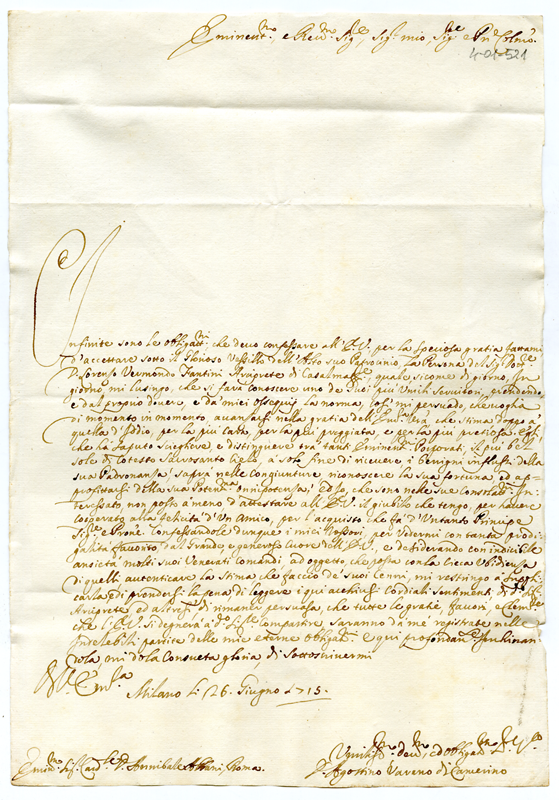 Eminent.mo, e Rev.mo Sig.re, Sig.r mio, Sig.re e P.ne Col.mo
4-01-521
Infinite sono le obligat.ni che devo confessare all'E.V. per la speciosa gratia fattami
d'accettare sotto il Glorioso Vessillo dell'Alto suo Patrocinio, la Persona del Sig.r
Lorenzo Vermondo Santini Arciprete di Casalma quale, sicome di giorno, in
giorno mi lusingo, che si farà conoscere uno de più Umili Servitori, prendendo
e dal proprio dovere, e da miei ossequij la norma, così mi persuado, che vogha
di momento in momento avanzarsi nella gratia dell' che stima doppo à
quella d'Iddio, per la più cara, per la più preggiata, e per la più pretiosa,
che hà saputo sciegliere, e distinguere trà tanti Eminent. Porporati,
Sole di Cotesto Sacrosanto à solo fine di ricevere i benigni influssi della
sua Padronanza, saprà nelle congiunture riconoscere la sua fortuna ed ap=
profitarsi della sua Potent.ma onnipotenza; Ed Io, che sono nelle sue Consolat.ni In=
teressato, non posso à meno d'attestare all'E.V. il giubilo che tengo, per havere
cooperato alla felicità d'Un Amico, per l'acquisto che fà d'Un tanto Principe
Sig.re e Prone. Confessandole dunque i miei rossori, per vedermi con tanta prodi=
galità favorito dal Grande, e generoso Cuore dell'E.V., e desiderando con indicibile
ansietà molti suoi Venerati Comandi, ad oggetto, che possa con la Cieca Obidienza
di quelli autenticare la Stima che faccio de' Suoi Cenni, mi restringo à Suppli=
carla di prendersi la pena di leggere i qui acchiusi Cordiali Sentimenti di
Arciprete ed altresì di rimaner persuasa, che tutte le gratie, favori,
che l'E.V. si degnerà à compartire, saranno da me registrate nelle
Indelebili partite delle mie eterne obligat.ni e qui profondam.te Inchinan=
dola mi dò la Consueta gloria, di Sottoscrivermi
Milano Li 26. Giugno 1715.
Emin.mo Sig. Card.le D. Annibale Albani, Roma.
Umiliss.mo dev.mo ed obligat.mo
Agostino Varano di Camerino